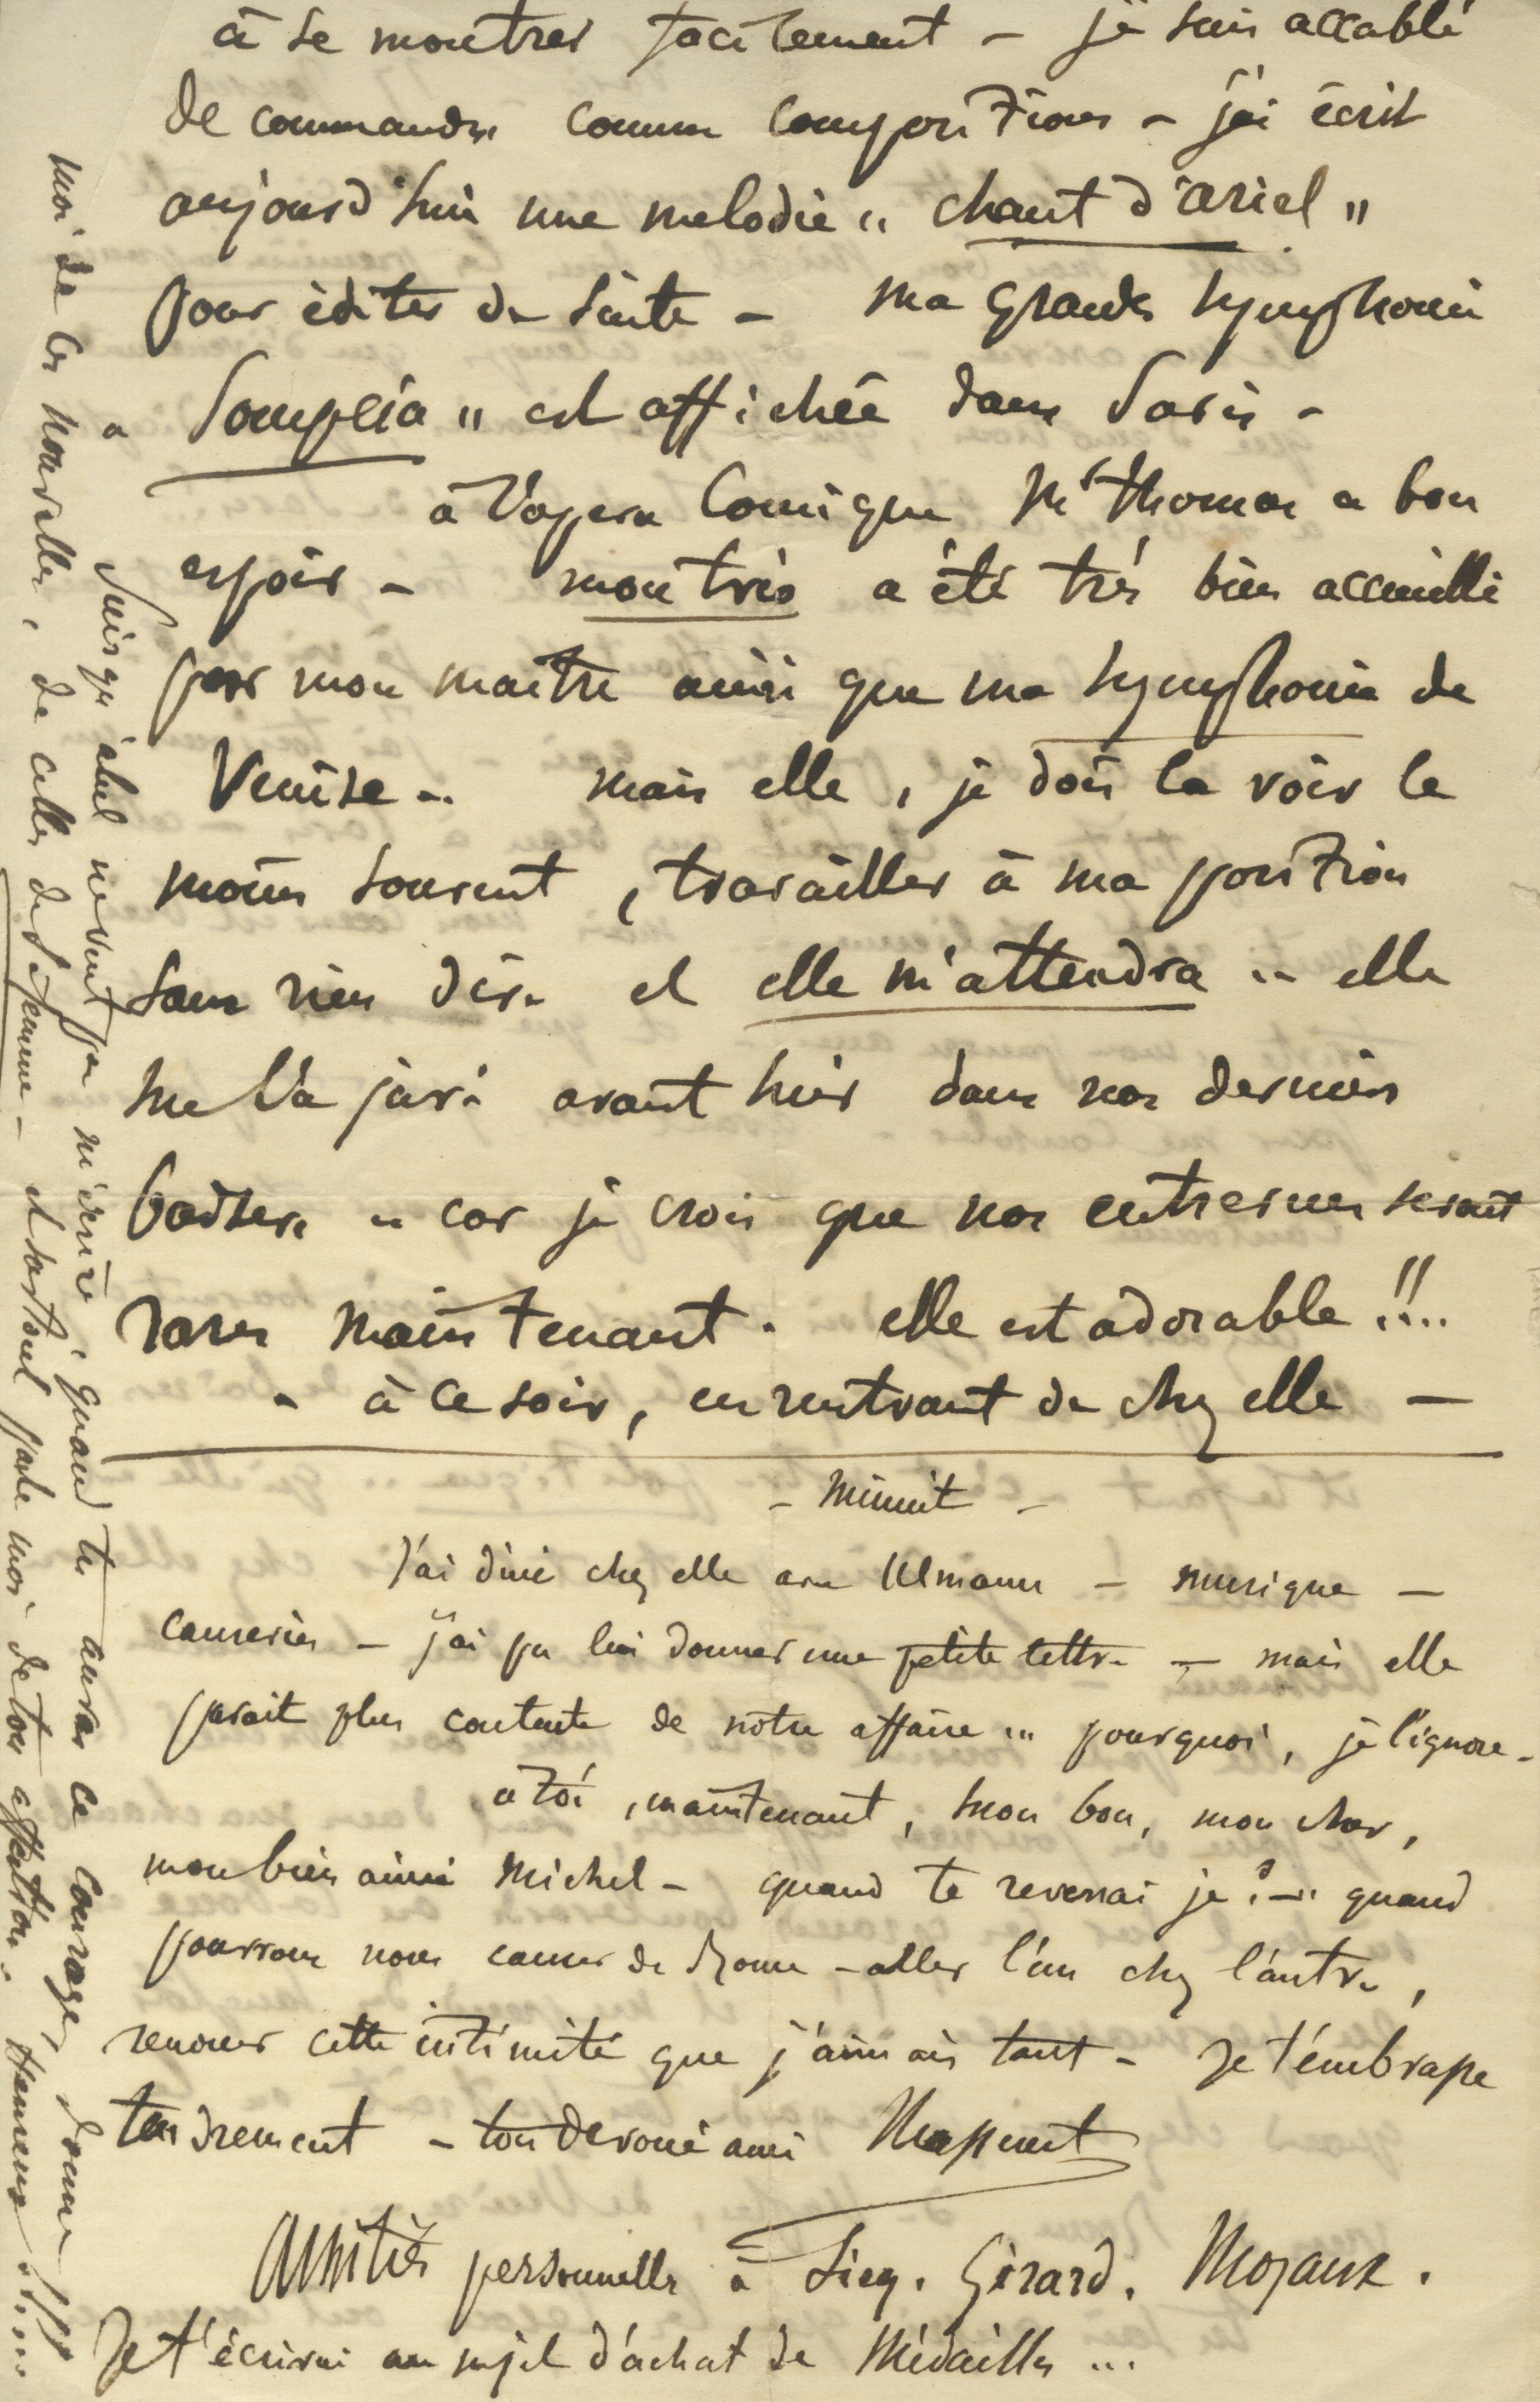 à se montrer facilement – je suis accablé
de commandes comme compositions – j'ai écrit
aujourd'hui une melodie " chant d'ariel "
pour éditer de suite – ma grande symphonie
Pompeïa " est affichée dans Paris –
à l'opera Comique Mr thomas a bon
espoir – mon trio a été très bien accueilli
par mon maître ainsi que ma symphonie de
Venise – mais elle, je dois la voir le
moins souvent, travailler à ma position
sans rien dire et elle m'attendra – elle
me l'a juré avant hier dans nos derniers
baisers – car je crois que nos entrevues seront
rares maintenant. elle est adorable !!..
– à ce soir, en rentrant de chez elle –
– Minuit –
J'ai diné chez elle avec Ulmann – musique –
causeries – j'ai pu lui donner une petite lettre – mais elle
parait plus contente de notre affaire ... pourquoi, je l'ignore –
a toi, maintenant, mon bon, mon cher,
mon bien aimé Michel – quand te reverrai je ? – quand
pourrons nous causer de Rome – aller l'un chez l'autre,
renouer cette intimité que j'aimais tant – Je t'embrasse
tendrement – ton devoué ami Massenet
Amitiés personnelles à Sieg. Girard. Moyaux.
Je t'écrirai au sujet d'achat de Médailles ...
Puisqu'abel ne veut pas m'écrire, quand tu auras ce courage, donne
moi de ses nouvelles, de celles de sa femme – et surtout parle moi de ton affection.